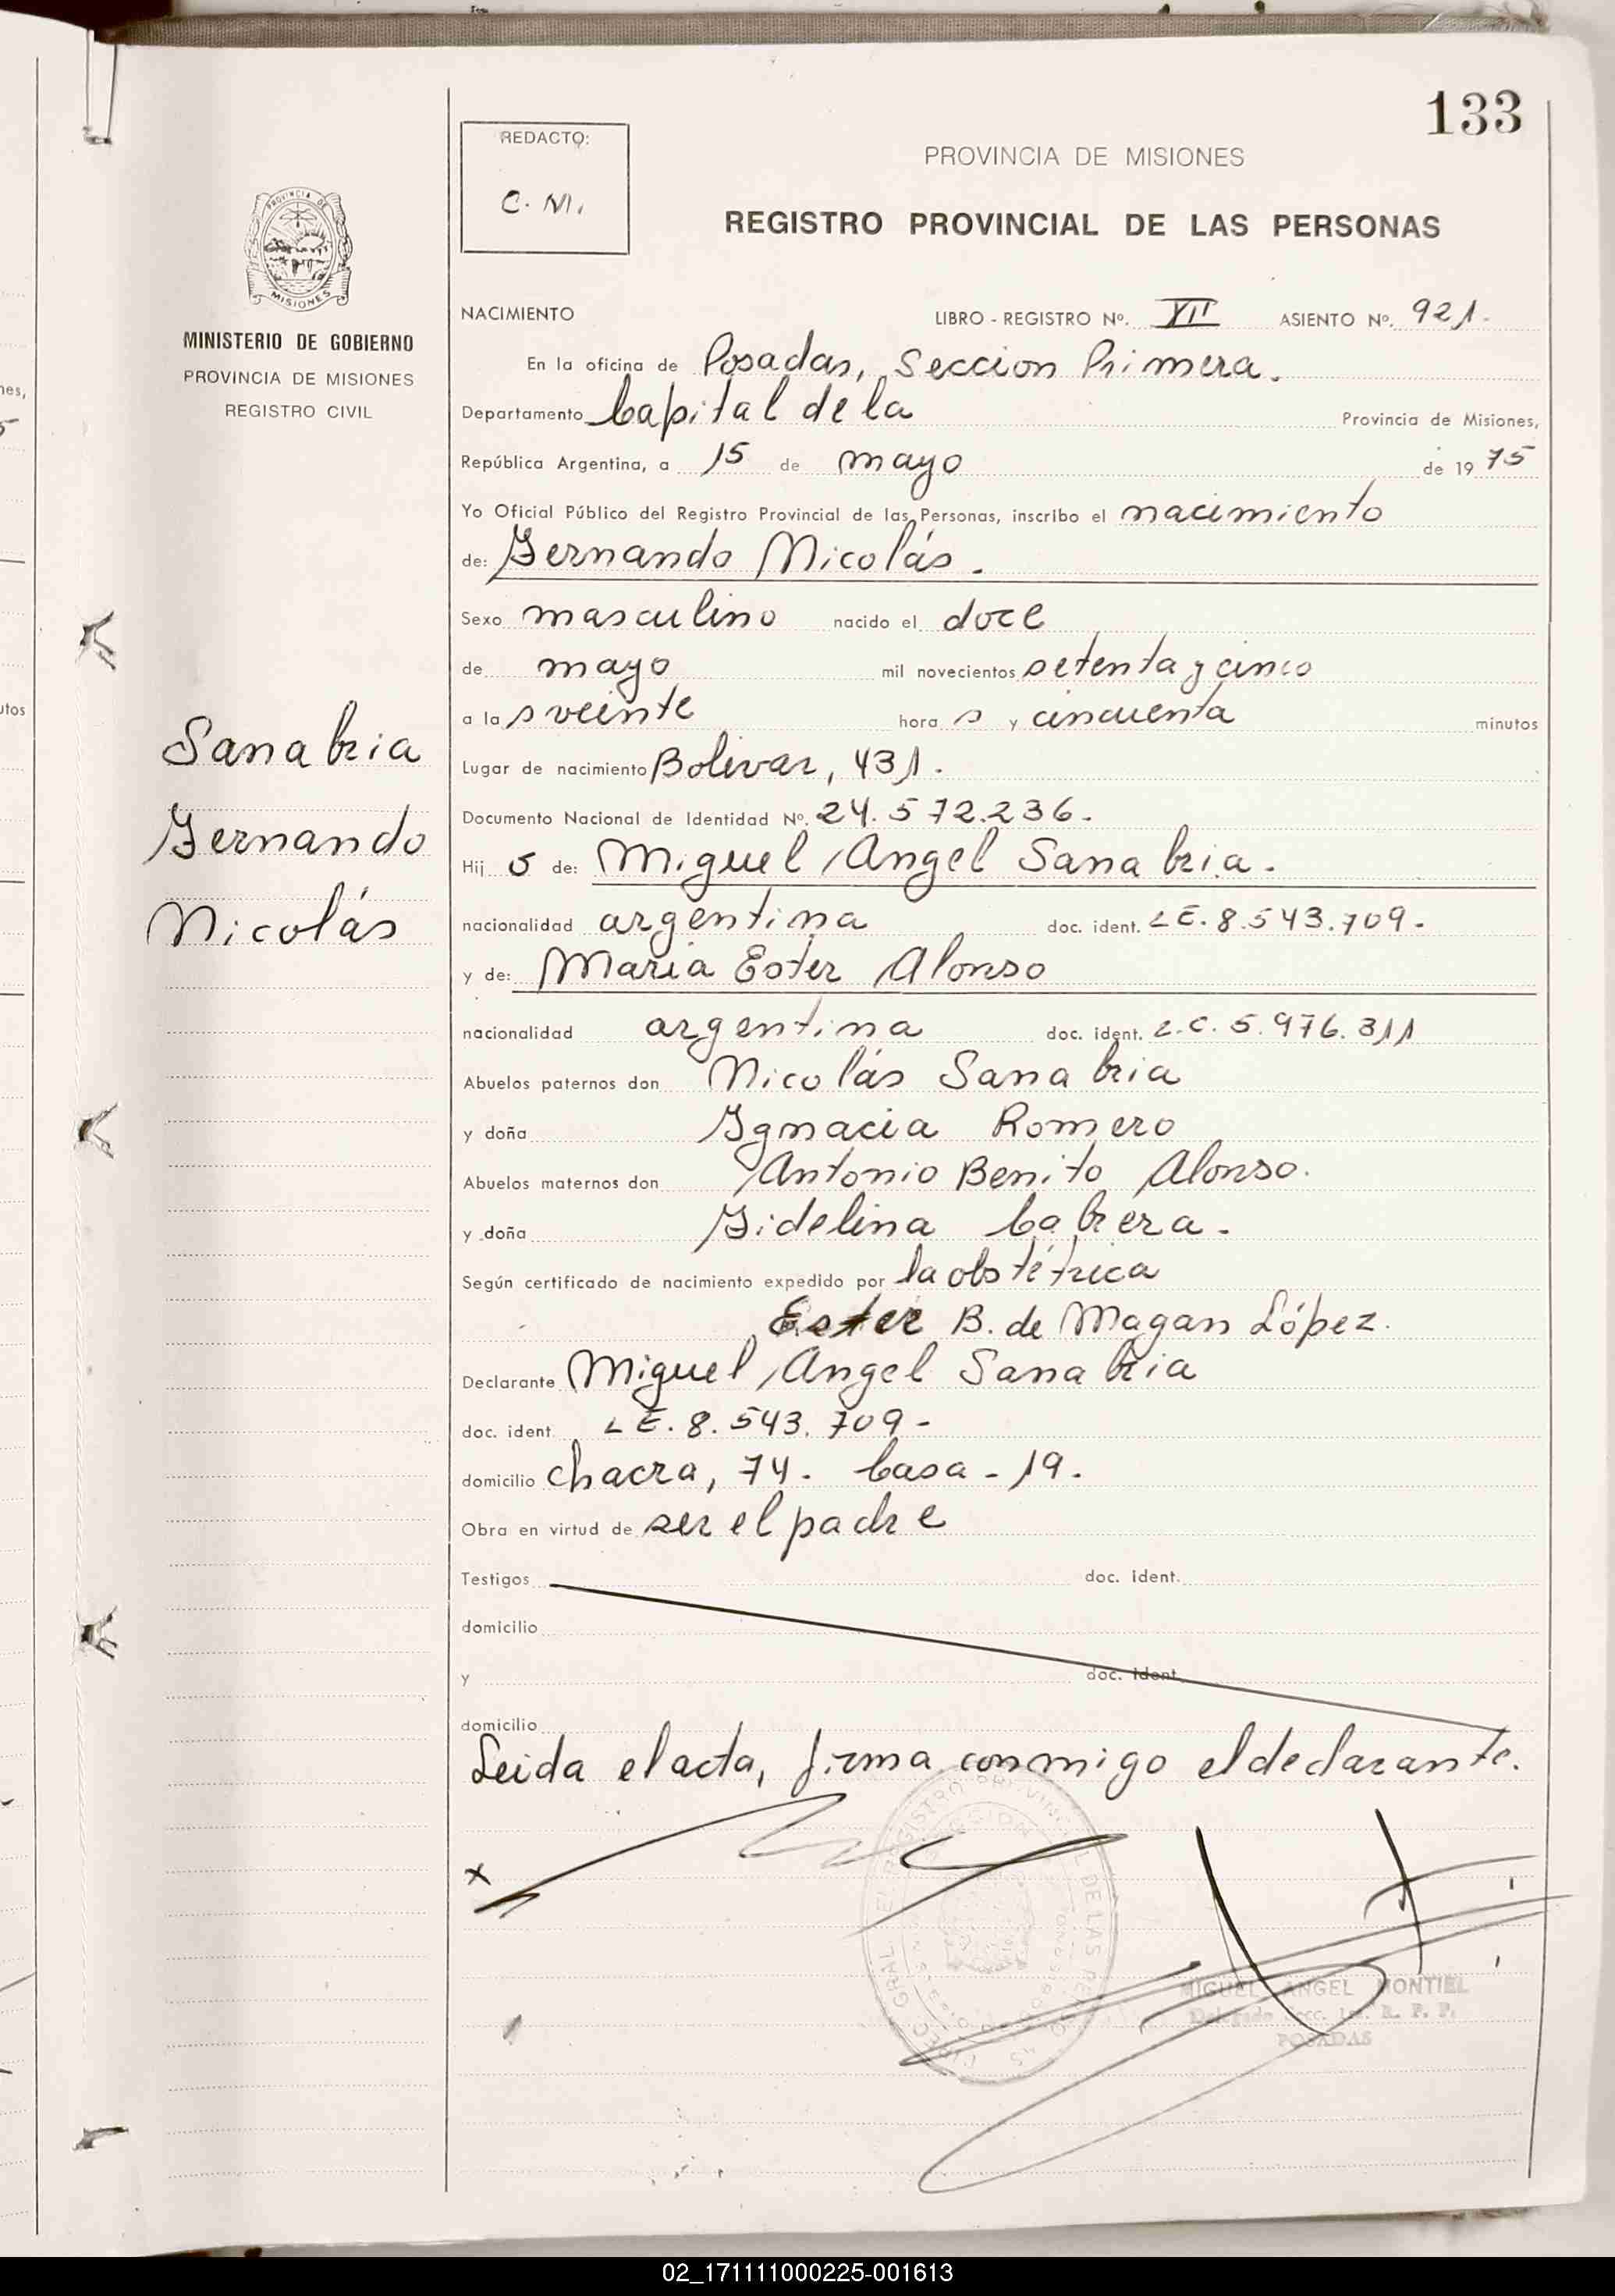 133
REDACTO:
C. M.
PROVINCIA DE MISIONES
REGISTRO PROVINCIAL DE LAS PERSONAS
PROVINCIA DE
MISIONES
MINISTERIO DE GOBIERNO
PROVINCIA DE MISIONES
REGISTRO CIVIL
NACIMIENTO LIBRO - REGISTRO Nº. VII ASIENTO Nº. 921.
En la oficina de Posadas, Seccion Primera.
Departamento Capital de la Provincia de Misiones,
República Argentina, a 15 de mayo de 1975
Yo Oficial Público del Registro Provincial de las Personas, inscribo el nacimiento
de: Fernando Nicolás.
Sexo masculino nacido el doce
de mayo mil novecientos setenta y cinco
a las veinte horas y cincuenta minutos
Lugar de nacimiento Bolivar, 431.
Documento Nacional de Identidad Nº. 24.572.236.
Hijo de: Miguel Angel Sanabria.
nacionalidad argentina doc. ident. L E. 8.543.709.
y de: Maria Ester Alonso
nacionalidad argentina doc. ident. L.C. 5.976.311
Abuelos paternos don Nicolás Sanabria
y doña Ignacia Romero
Abuelos maternos don Antonio Benito Alonso.
y doña Fidelina Cabrera.
Según certificado de nacimiento expedido por la obstétrica
Ester B. de Magan López.
Declarante Miguel Angel Sanabria
doc. ident. L E. 8.543.709-
domicilio chacra, 74. Casa - 19.
Obra en virtud de ser el padre
Testigos doc. ident.
domicilio
y doc. ident.
domicilio
Leida el acta, firma conmigo el declarante.
x
MIGUEL ANGEL MONTIEL
Delegado Secc. 1a. R. P. P.
POSADAS
Sanabria
Fernando
Nicolás
nes,
utos
02_171111000225-001613